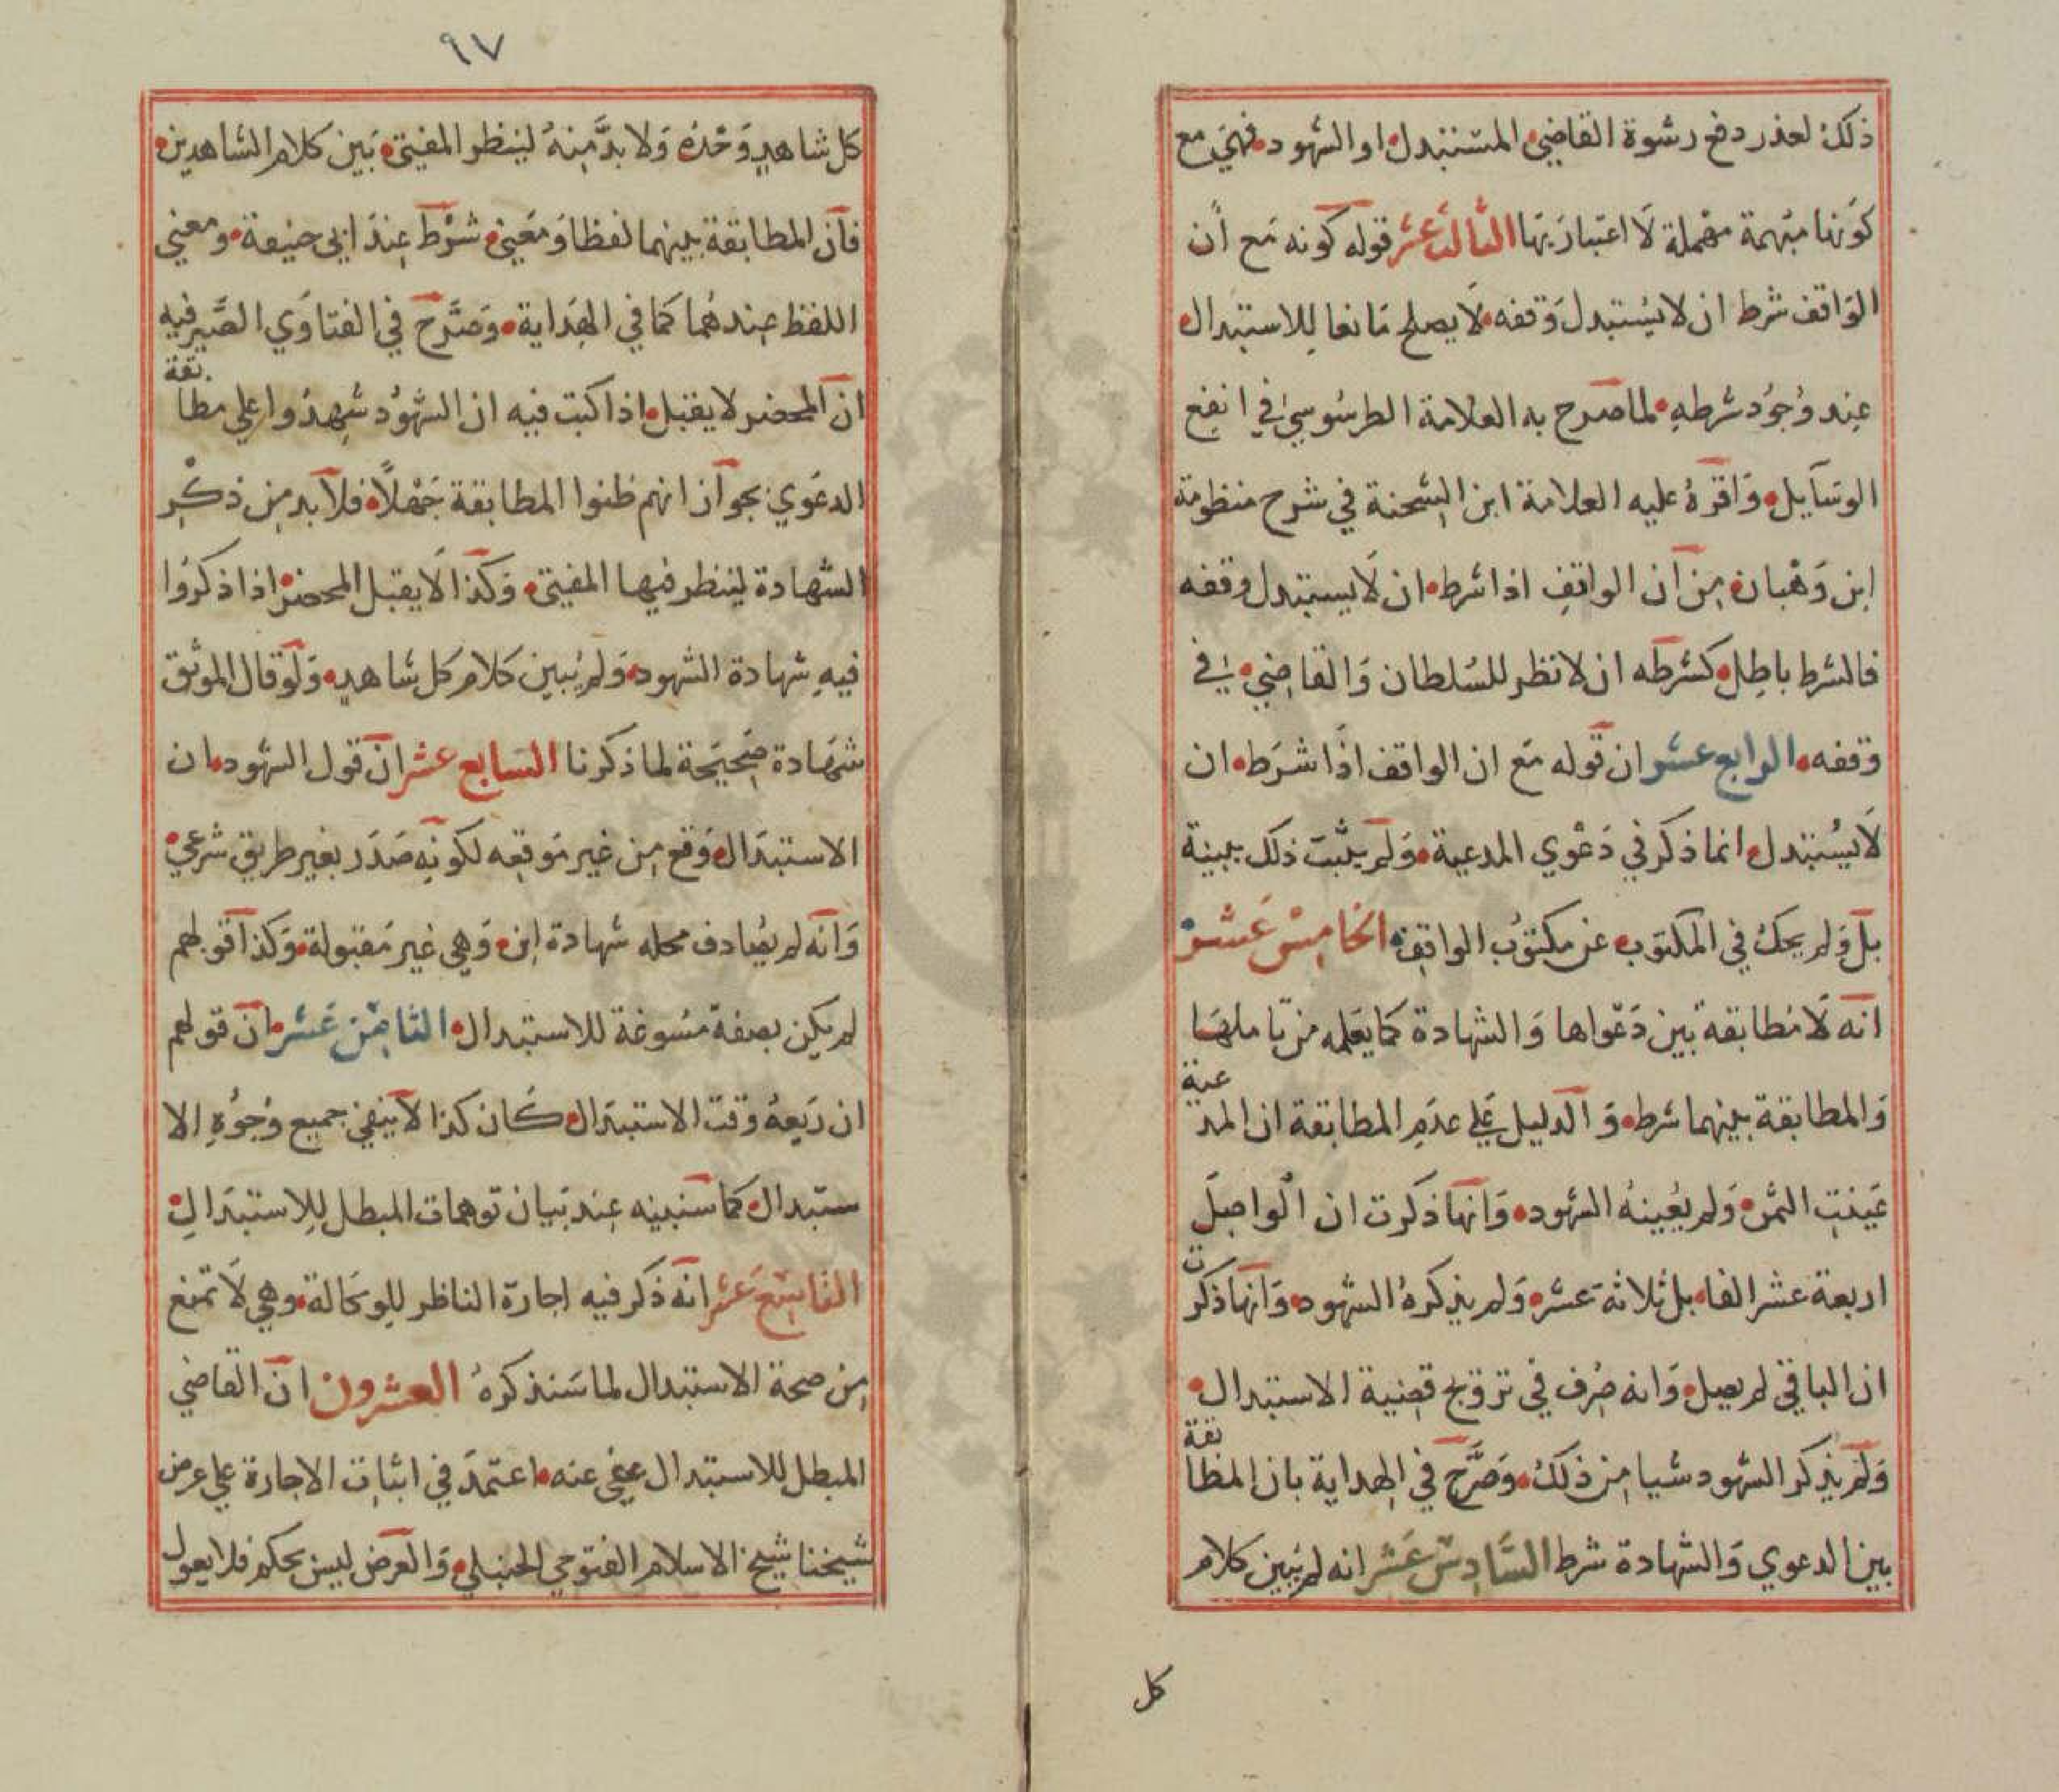 ذلك لعذر دفع رشوة القاضي المستبدل او الشهود فهي مع
كونها مبهمة مهملة لا اعتبار بها الثالث عشر قوله كونه مع أن
الواقف شرط ان لا يستبدل وقفه لا يصلح مانعا للاستبدال
عند وجود شرطه لما صرح به العلامة الطرسوسي في انفع
الوسايل واقره عليه العلامة ابن الشحنة في شرح منظومة
ابن وهبان من ان الواقف اذا شرط ان لا يستبدل وقفه
فالشرط باطل كشرطه ان لا نظر للسلطان والقاضي في
وقفه الرابع عشر ان قوله مع ان الواقف اذا شرط ان
لا يستبدل انما ذكر في دعوي المدعية ولم يثبت ذلك ببينة
بل ولم يحك في المكتوب عن مكتوب الواقف الخامس عشر
انه لا مطابقة بين دعواها والشهادة كما يعلمه من تاملها
والمطابقة بينهما شرط والدليل علي عدم المطابقة ان المدعية
عينت الثمن ولم يعينه الشهود وانها ذكرت ان الواصل
اربعة عشر الفا بل ثلاثة عشر ولم يذكره الشهود وانها ذكرت
ان الباقي لم يصل وانه صرف في تزويج قضية الاستبدال
ولم يذكر الشهود شيا من ذلك وصرح في الهداية بان المطابقة
بين الدعوي والشهادة شرط السادس عشر انه لم يبين كلام
كل
٩٧
كل شاهد وحده ولا بد منه لينظر المفتي بين كلام الشاهدين
فان المطابقة بينهما لفظا ومعني شرط عند ابي حنيفة ومعني
اللفظ عندهما كما في الهداية وصرح في الفتاوي الصيرفيه
ان المحضر لا يقبل اذا كبت فيه ان الشهود شهدوا علي مطابقة
الدعوي بجواز انهم ظنوا المطابقة جهلا فلا بد من ذكر
الشهادة لينظر فيها المفتي وكذا لا يقبل المحضر اذا ذكروا
فيه شهادة الشهود ولم يبين كلام كل شاهد ولو قال الموثق
شهادة صحيحة لما ذكرنا السابع عشر ان قول الشهود ان
الاستبدال وقع من غير موقعه لكونه صدر بغير طريق شرعي
وانه لم يصادف محله شهادة اين وهي غير مقبولة وكذا قولهم
لم يكن بصفة مسوغة للاستبدال الثامن عشر ان قولهم
ان ريعه وقت الاستبدال كان كذا لا ينفي جميع وجوه الا
ستبدال كما سنبينه عند بيان توهمات المبطل للاستبدال
التاسع عشر انه ذكر فيه اجارة الناظر للوكالة وهي لا تمنع
من صحة الاستبدال لما سنذكره العشرون ان القاضي
المبطل للاستبدال عفي عنه اعتمد في اثبات الاجارة علي عرض
شيخنا شيخ الاسلام الفتوحي الحنبلي والعرض ليس بحكم فلا يعول